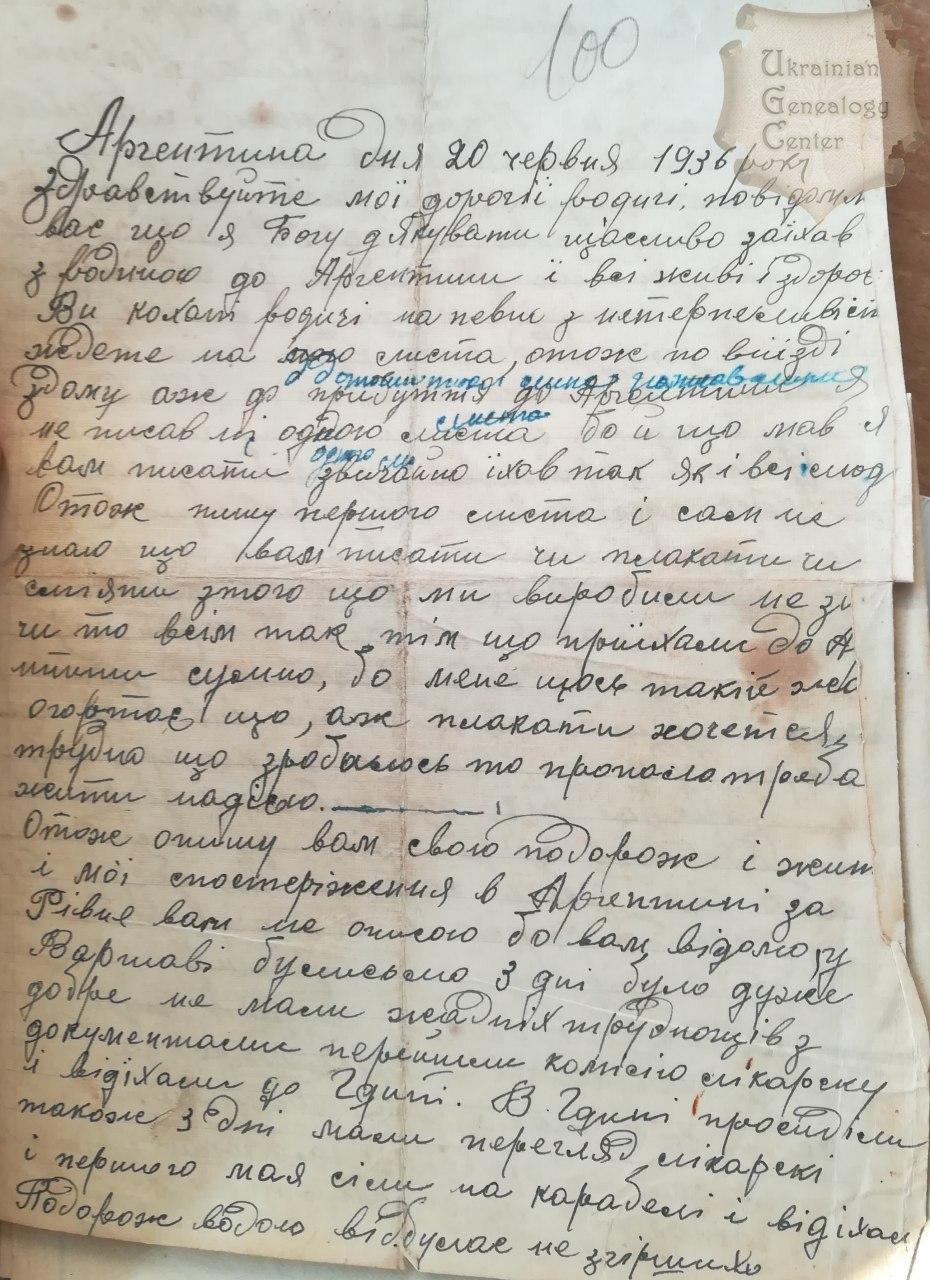 100
Ukrainian
Genealogy
Center
Аргентина дня 20 червня 1936 року
Здравствуйте мої дорогії родичі, повідомл
вас що я Богу дякувати щасливо заїхав
з родиною до Аргентини і всі живі і здоро
Ви кохаті родичі на певн з нетерпеливіст
ждете на листа, отож по виїзді
здому аж до прибуття до Аргентини я
не писав ні одного листа бо й що мав я
вам писати звичайно їхав так як і всі люд
Отож пишу першого листа і сам не
знаю що вам писати чи плакати чи
сміяти зтого що ми виробили не зн
чи то всім так тім що приїхали до А
нтини сумно, бо мене щось такій жа
огортає що, аж плакати хочеться,
трудно що зробилось то пропало треба
жити надією.
Отож опишу вам свою подорож і жит
і мої спостеріження в Аргентині за
Рівне вам не описою бо вам відомо, у
Варшаві булисьмо 3 дні було дуже
добре не мали жадніх трудношців з
документами перейшли комісію лікарску
і відіхали до Гдині. В Гдині просиділи
також 3 дні мали перегляд лікарскі
і першого мая сіли на карабелі і відіхали
Подорож водою відбулас не згіршихо